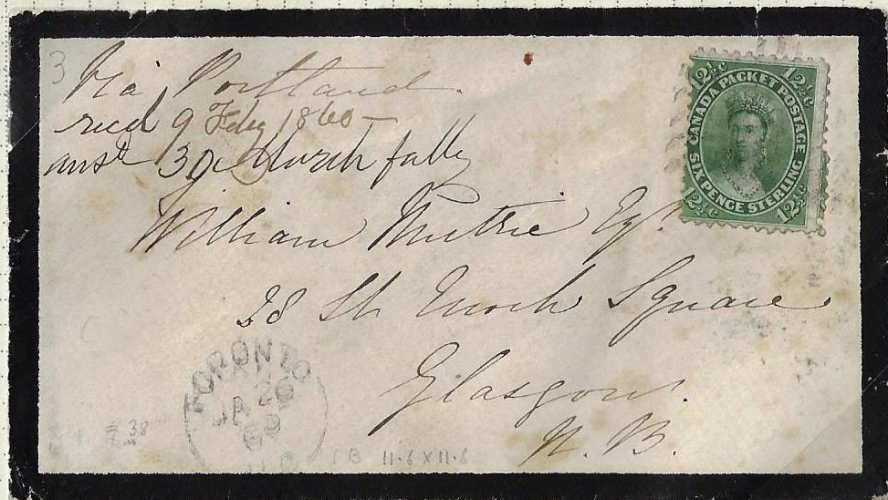 3
Via Portland
recd 9 Feby 1860 -
ansd 30 March fully
William Mutrie Esqr
28 St Enoch Square
Glasgow
N. B.
12½c 12½c
CANADA PACKET POSTAGE
SIX PENCE STERLING
12½c 12½c
TORONTO
JA 26
60
38
11.6 x 11.6